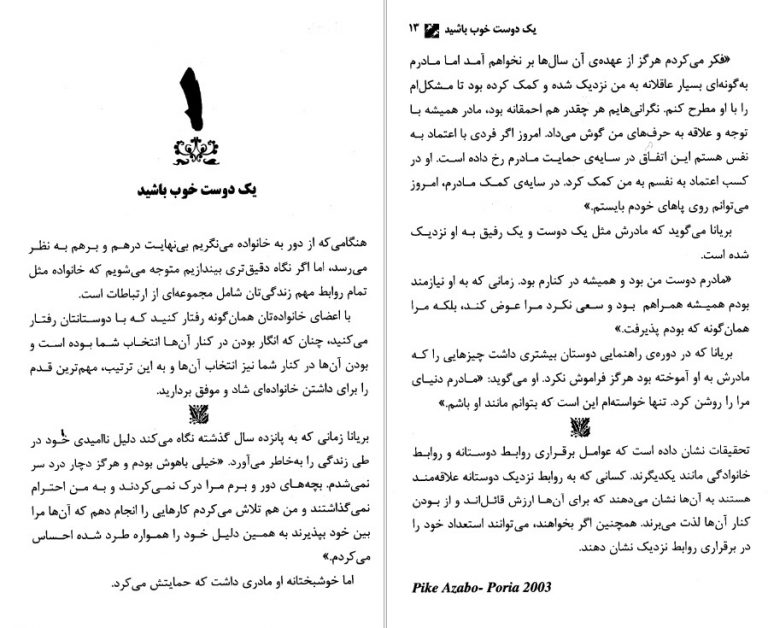 ۱
یک دوست خوب باشید
هنگامی‌که از دور به خانواده می‌نگریم بی‌نهایت درهم و برهم به نظر
می‌رسد، اما اگر نگاه دقیق‌تری بیندازیم متوجه می‌شویم که خانواده مثل
تمام روابط مهم زندگی‌تان شامل مجموعه‌ای از ارتباطات است.
با اعضای خانواده‌تان همان‌گونه رفتار کنید که با دوستانتان رفتار
می‌کنید، چنان که انگار بودن در کنار آن‌ها انتخاب شما بوده است و
بودن آن‌ها در کنار شما نیز انتخاب آن‌ها و به این ترتیب، مهم‌ترین قدم
را برای داشتن خانواده‌ای شاد و موفق بردارید.
بریانا زمانی که به پانزده سال گذشته نگاه می‌کند دلیل ناامیدی خود در
طی زندگی را به‌خاطر می‌آورد. «خیلی باهوش بودم و هرگز دچار درد سر
نمی‌شدم. بچه‌های دور و برم مرا درک نمی‌کردند و به من احترام
نمی‌گذاشتند و من هم تلاش می‌کردم کارهایی را انجام دهم که آن‌ها مرا
بین خود بپذیرند به همین دلیل خود را همواره طرد شده احساس
می‌کردم.»
اما خوشبختانه او مادری داشت که حمایتش می‌کرد.
یک دوست خوب باشید ۱۳
«فکر می‌کردم هرگز از عهده‌ی آن سال‌ها بر نخواهم آمد اما مادرم
به‌گونه‌ای بسیار عاقلانه به من نزدیک شده و کمک کرده بود تا مشکل‌ام
را با او مطرح کنم. نگرانی‌هایم هر چقدر هم احمقانه بود، مادر همیشه با
توجه و علاقه به حرف‌های من گوش می‌داد. امروز اگر فردی با اعتماد به
نفس هستم این اتفاق در سایه‌ی حمایت مادرم رخ داده است. او در
کسب اعتماد به نفسم به من کمک کرد. در سایه‌ی کمک مادرم، امروز
می‌توانم روی پاهای خودم بایستم.»
بریانا می‌گوید که مادرش مثل یک دوست و یک رفیق به او نزدیک
شده است.
«مادرم دوست من بود و همیشه در کنارم بود. زمانی که به او نیازمند
بودم همیشه همراهم بود و سعی نکرد مرا عوض کند، بلکه مرا
همان‌گونه که بودم پذیرفت.»
بریانا که در دوره‌ی راهنمایی دوستان بیشتری داشت چیزهایی را که
مادرش به او آموخته بود هرگز فراموش نکرد. او می‌گوید: «مادرم دنیای
مرا را روشن کرد. تنها خواسته‌ام این است که بتوانم مانند او باشم.»
تحقیقات نشان داده است که عوامل برقراری روابط دوستانه و روابط
خانوادگی مانند یکدیگرند. کسانی که به روابط نزدیک دوستانه علاقه‌مند
هستند به آن‌ها نشان می‌دهند که برای آن‌ها ارزش قائل‌اند و از بودن
کنار آن‌ها لذت می‌برند. همچنین اگر بخواهند، می‌توانند استعداد خود را
در برقراری روابط نزدیک نشان دهند.
Pike Azabo- Poria 2003